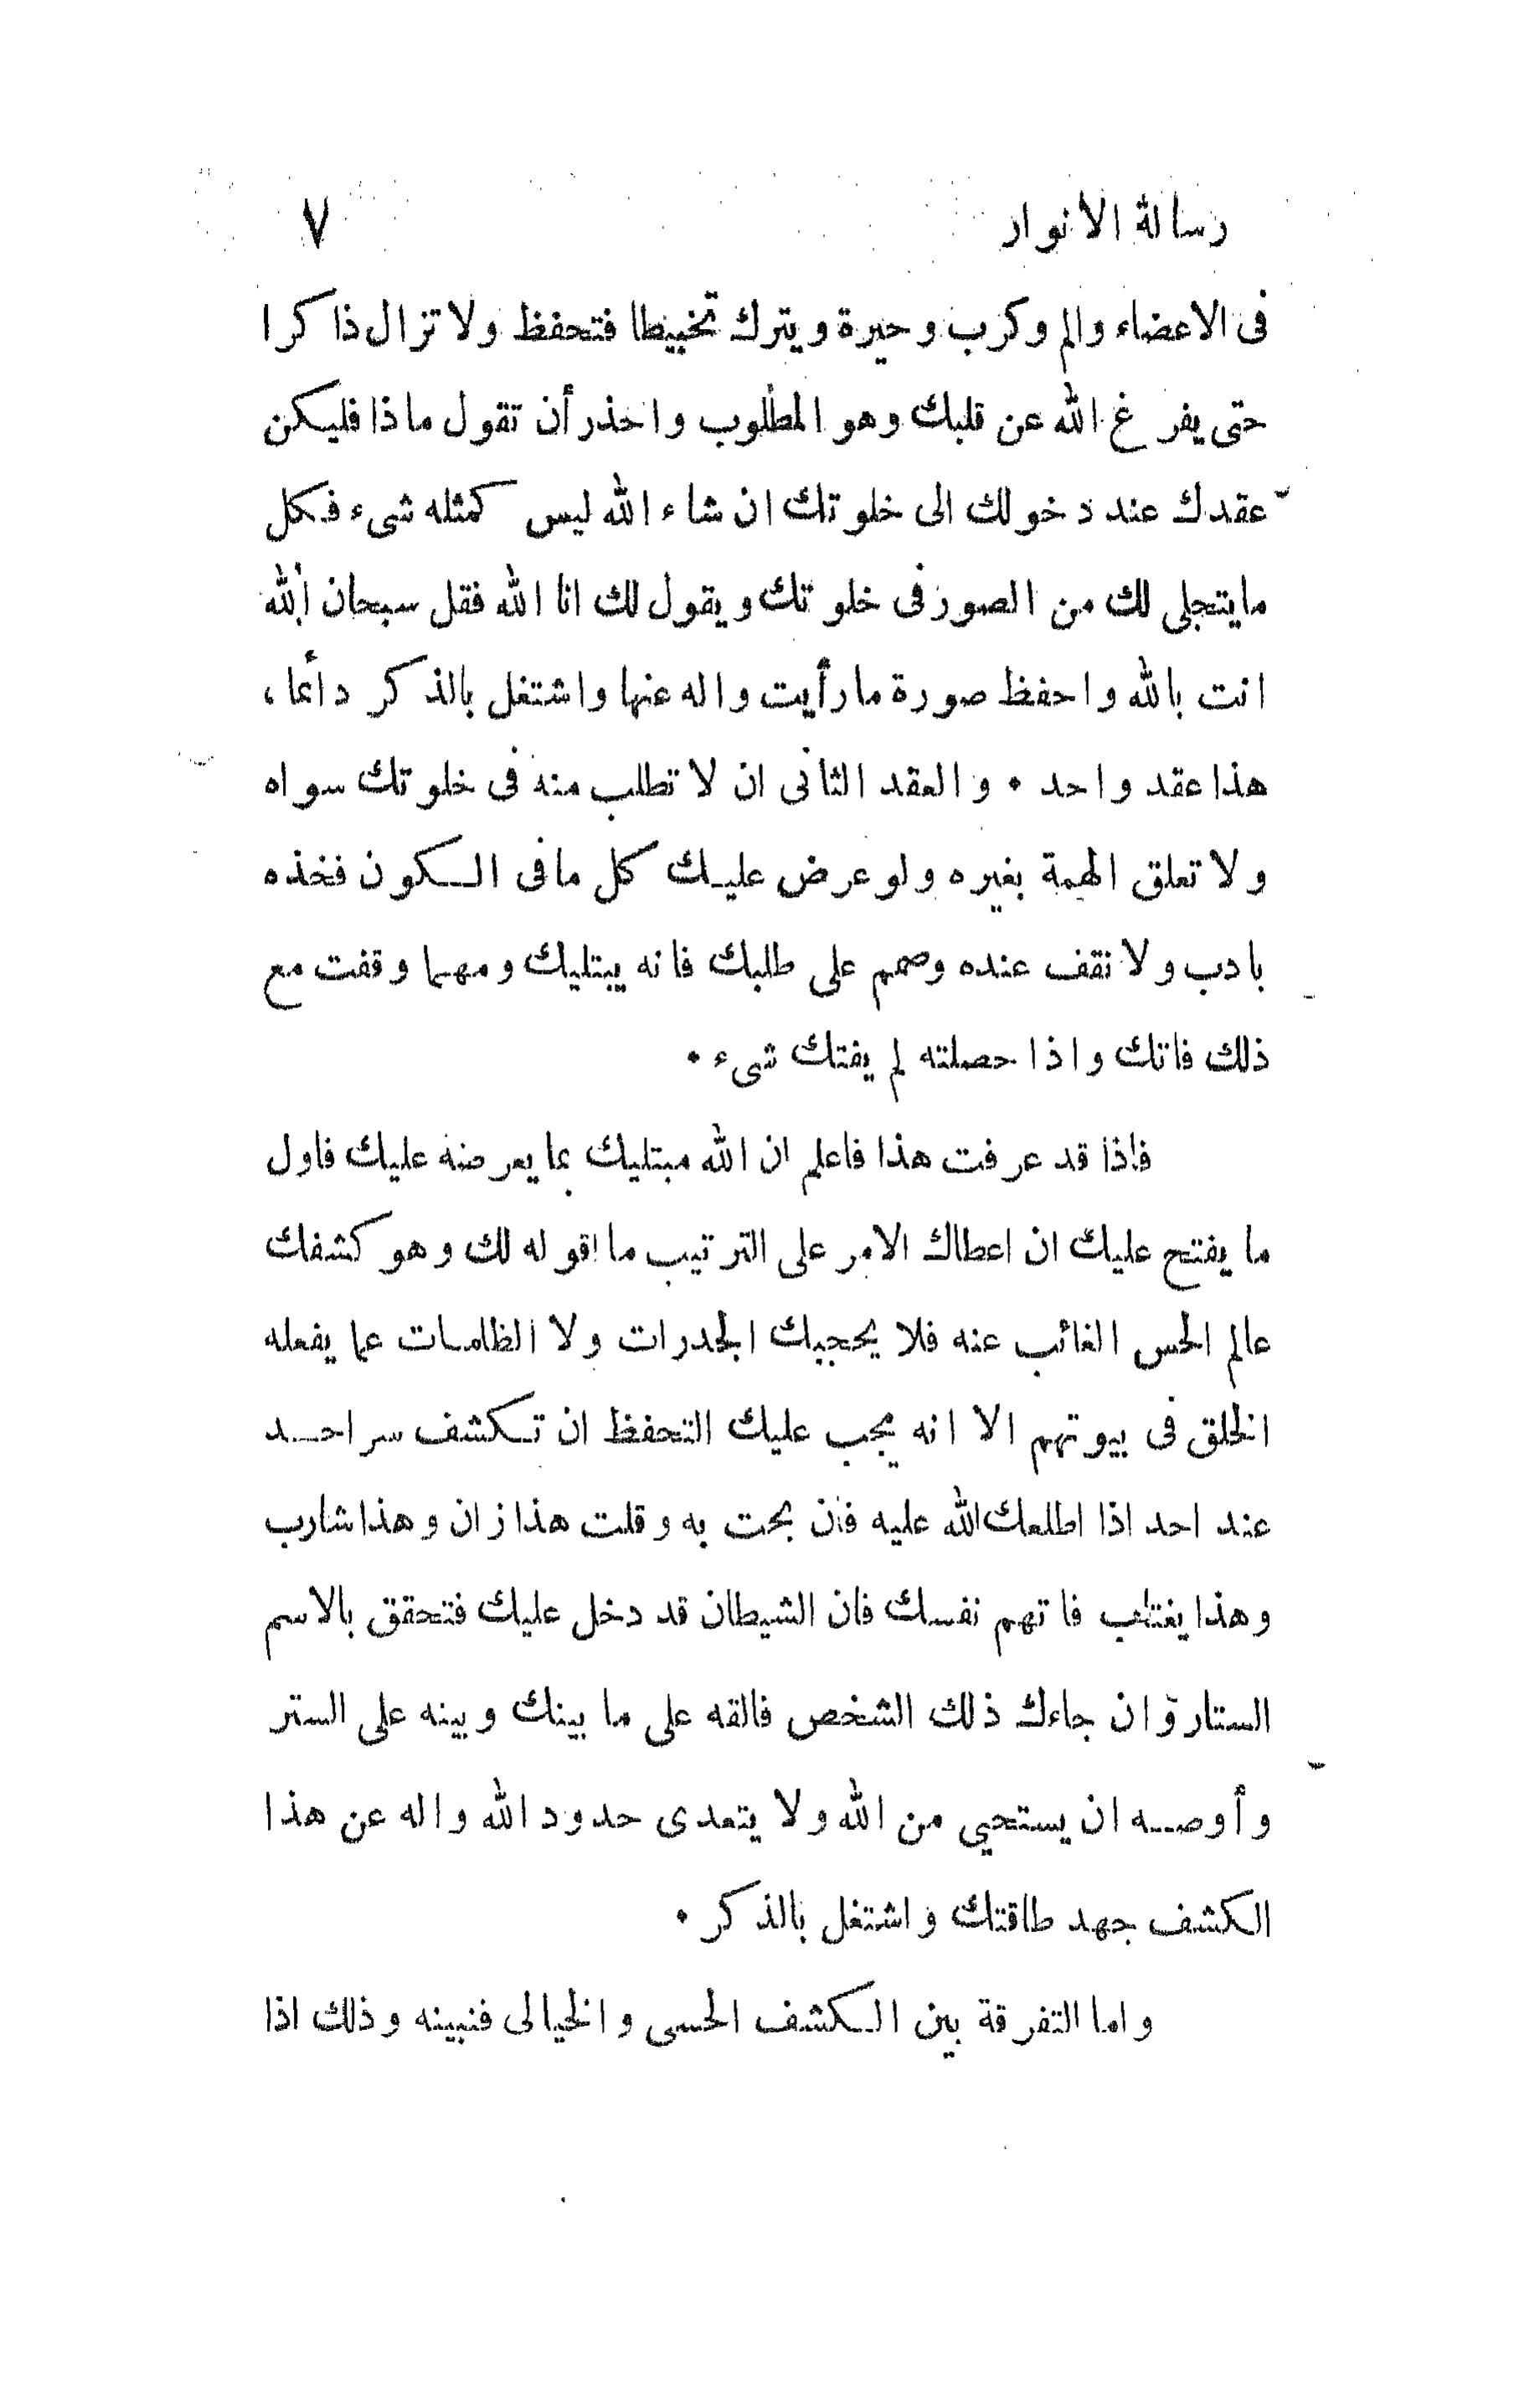 رسالة الانوار ٧
فى الاعضاء والم وكرب وحيرة ويترك تخبيطا فتحفظ ولا تزال ذاكرا
حتى يفرغ الله عن قلبك وهو المطلوب واحذر أن تقول ماذا فليكن
عقدك عند دخولك الى خلوتك ان شاء الله ليس كمثله شىء فكل
ما يتجلى لك من الصور فى خلوتك ويقول لك انا الله فقل سبحان الله
انت بالله واحفظ صورة ما رأيت واله عنها واشتغل بالذكر دائما ،
هذا عقد واحد ٠ والعقد الثانى ان لا تطلب منه فى خلوتك سواه
ولا تعلق الهمة بغيره ولو عرض عليك كل ما فى الكون فخذه
بادب ولا نقف عنده وصمم على طلبك فانه يبتليك ومهما وقفت مع
ذلك فاتك واذا حصلته لم يفتك شىء ٠
فاذا قد عرفت هذا فاعلم ان الله مبتليك بما يعرضه عليك فاول
ما يفتح عليك ان اعطاك الامر على الترتيب ما اقوله لك وهو كشفك
عالم الحس الغائب عنه فلا يحجبك الجدرات ولا الظلمات عما يفعله
الخلق فى بيوتهم الا انه يجب عليك التحفظ ان تكشف سر احد
عند احد اذا اطلعك الله عليه فان بحت به وقلت هذا زان وهذا شارب
وهذا يغتاب فاتهم نفسك فان الشيطان قد دخل عليك فتحقق بالاسم
الستار وان جاءك ذلك الشخص فالقه على ما بينك وبينه على الستر
وأوصه ان يستحيي من الله ولا يتعدى حدود الله واله عن هذا
الكشف جهد طاقتك واشتغل بالذكر ٠
واما التفرقة بين الكشف الحسى والخيالى فنبينه وذلك اذا